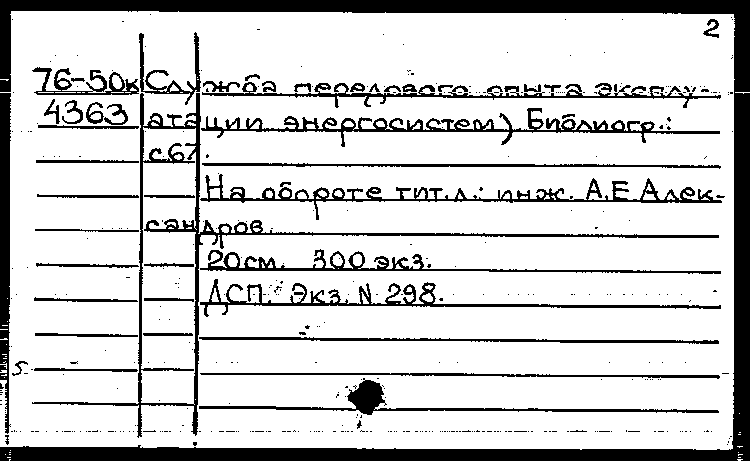 2
76-50к Служба передового опыта эксплу-
4363 атации энергосистем) Библиогр.:
с.67.
На обороте тит.л.: инж. А.Е Алек-
сандров.
20см. 300 экз.
ДСП. Экз. N 298.
5